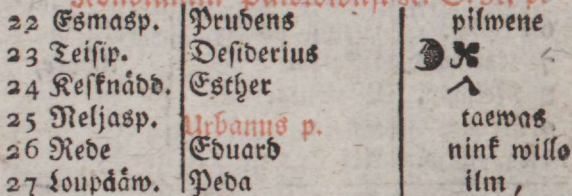 22 Esmasp. Prudens pilwene
23 Teisip. Desiderius
24 Kesknädd. Esther
25 Neljasp. Urbanus p. taewas
26 Rede Eduard nink willo
27 Loupääw. Peda ilm,